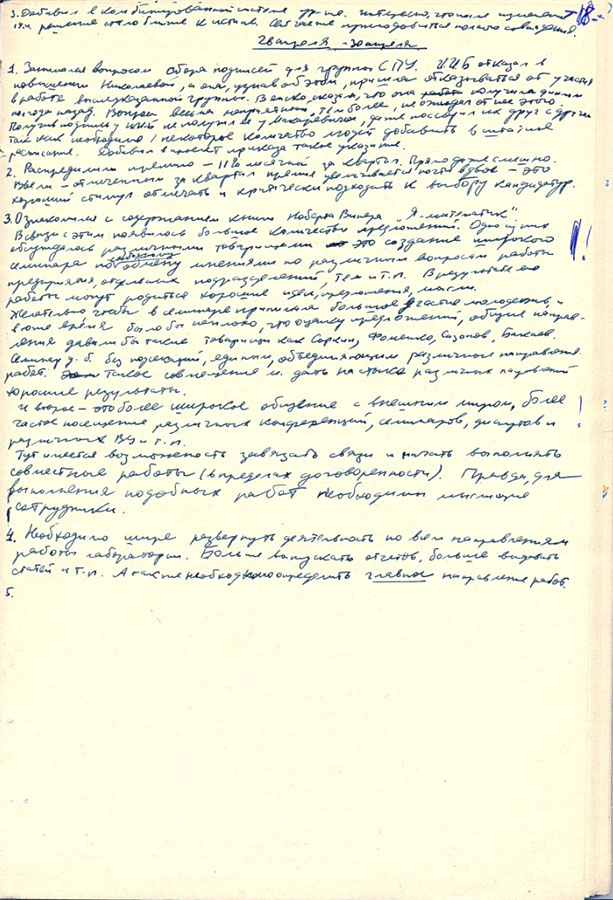 3. Добавил в комбинированной системе трение. Интересно, что после изменений
решение стало ближе к истине. Сейчас не приходовится полного совпадения.
18
28 апреля - 30 апреля
1. Занимался вопросом сбора подписей для группы СПУ. ИИБ отказал в
повышении Николаевой, а она, узнав об этом, пришла отказываться от участия
в работе вышеуказанной группы. Веско сказав, что она получила диплом
полгода назад. Вопрос весьма неприятный, тем более, не ожидал от нее этого.
Получил подпись у не получил ее у Макаревича, даже поссорил их друг с другом
так как необходимо некоторое количество людей добавить в штатное
расписание. Добавил в проект приказа такое указание.
2. Распределили премию - 11% месячной за квартал. Прямо даже смешно.
Ввели - отличенным за квартал премия увеличивается почти вдвое - это
хороший стимул отмечать и критически подходить к выбору кандидатур.
3. Ознакомился с содержанием книги Норберта Винера "Я - математик".
В связи с этим появилось большое количество предложений. Одно из них
обсуждалось различными товарищами это создание широкого
семинара по обмену мнениями по различным вопросам работы
предприятия, отдельных подразделений, тем и т.п. В результате его
работы могут родиться хорошие идеи, предложения, мысли.
Желательно чтобы в семинаре принимала большое участие молодежь, и
в то же время было бы неплохо, что оценку предложений, общие направ-
ления давали бы такие товарищи как Соркин, Фоменко, Сазонов, Бакаев.
Семинар д.б. без подсекций, единым, объединяющим различные направления
работ. Такое совмещение и дать на стыке различных направлений
хорошие результаты.
И второе - это более широкое общение с внешним миром, более
частое посещение различных конференций, семинаров, диспутов и
различных ВУ и т.п.
Тут имеется возможность завязать связи и начать выполнять
совместные работы (в пределах договоренности). Правда, для
выполнения подобных работ необходимы мыслящие
сотрудники.
4. Необходимо шире развернуть деятельность по всем направлениям
работы лаборатории. Больше выпускать отчетов, больше выдавать
статей и т.п. А также необходимо определить главное направление работ.
5.